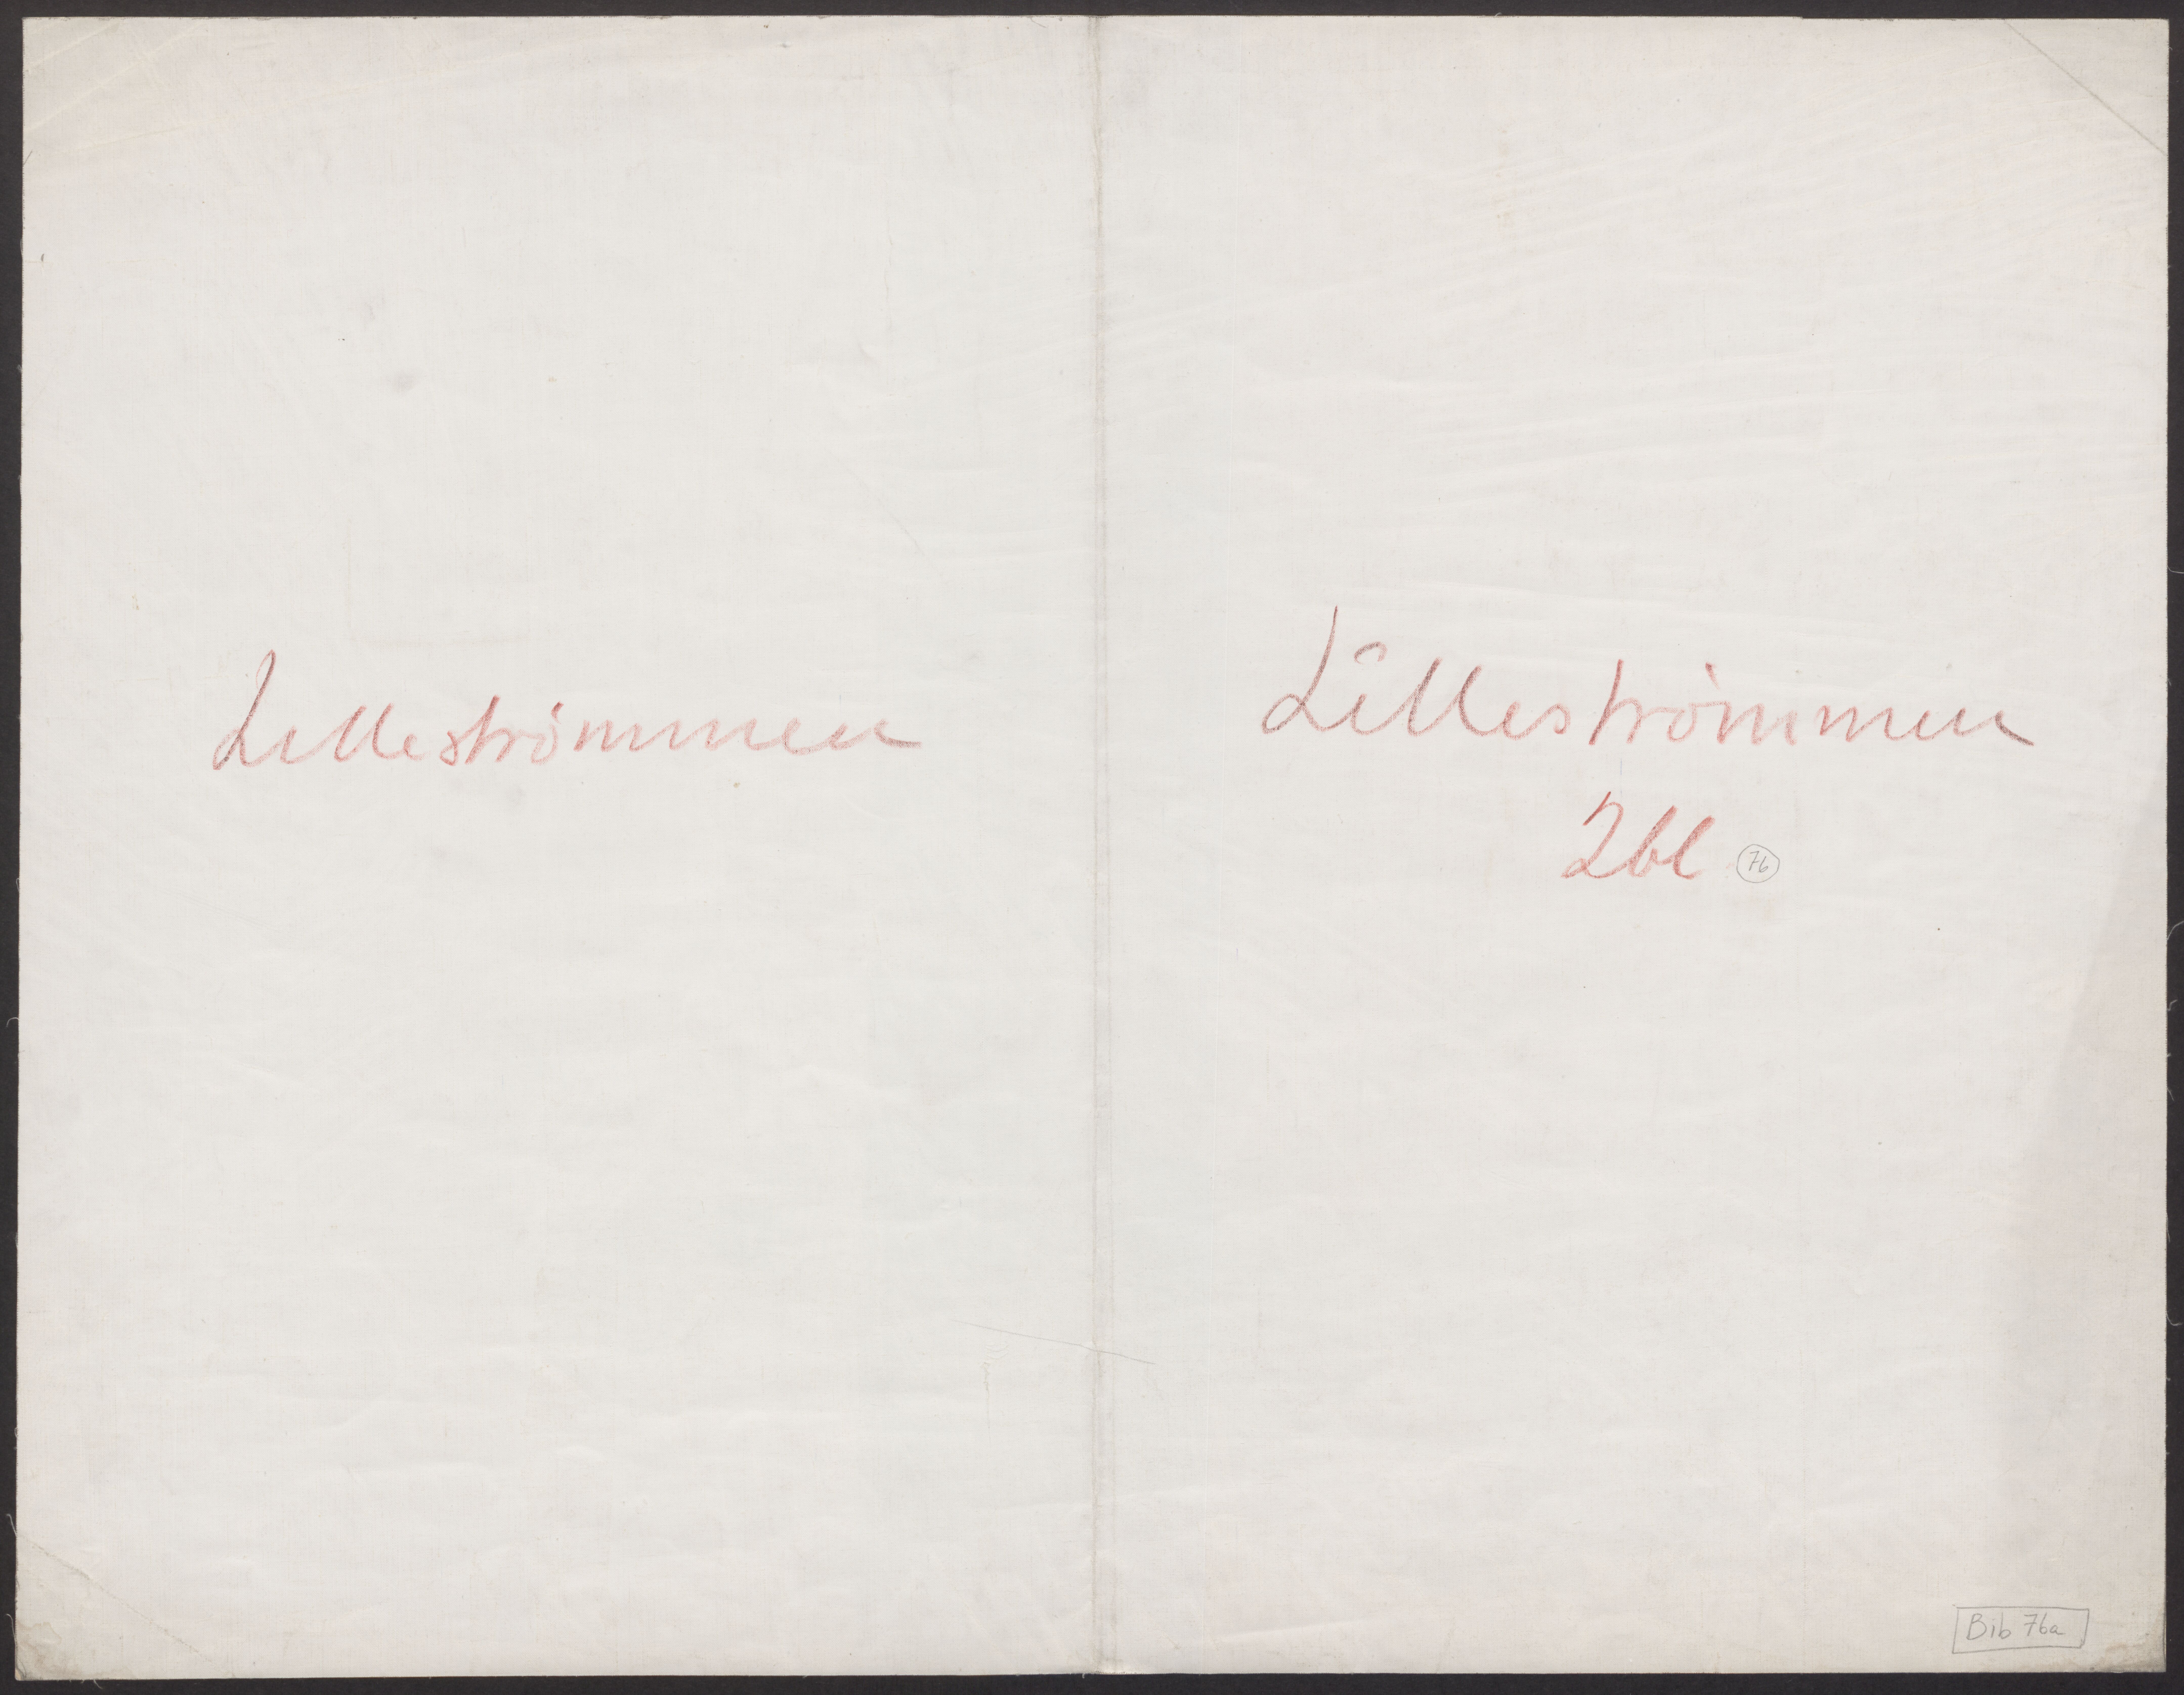 Lilleströmmen
Lilleströmmen
2bl
76
Bib 76a